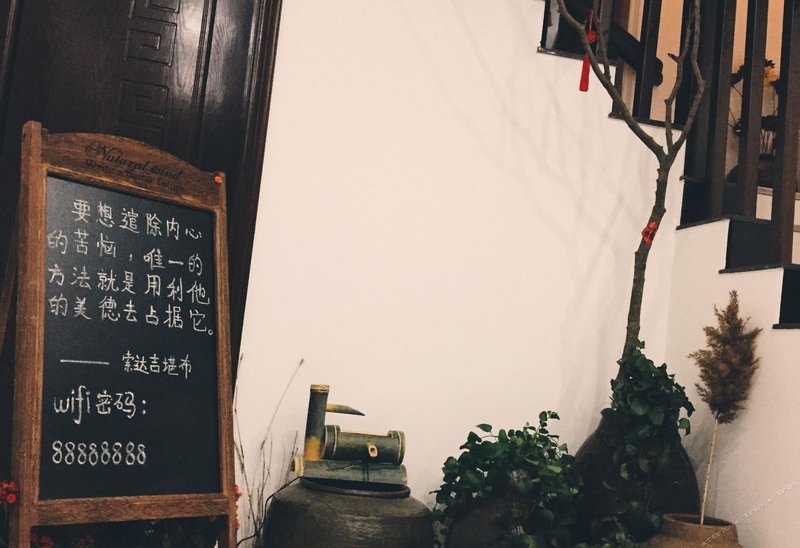 Natural wind
要想遣除内心
的苦恼，唯一的
方法就是用利他
的美德去占据它。
—— 索达吉堪布
wifi密码：
88888888